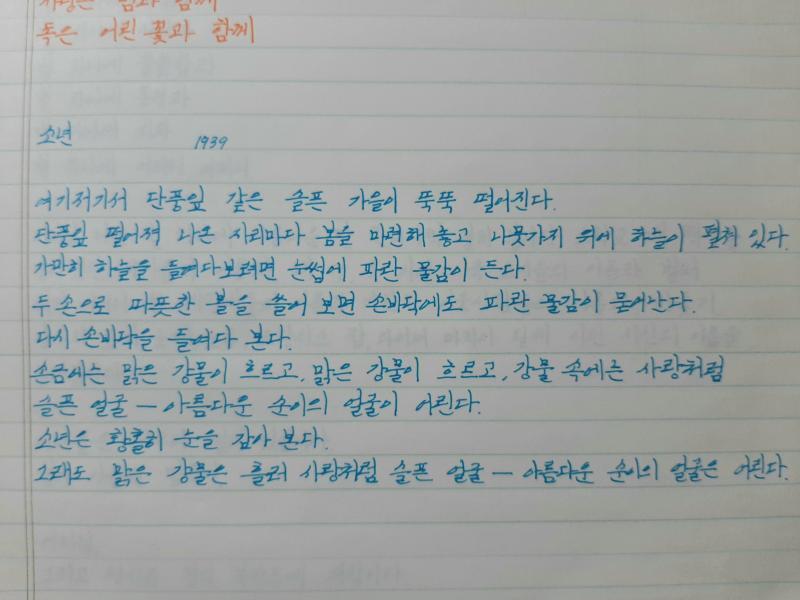 사랑은 뱀과 함께
독은 어린 꽃과 함께
소년 1939
여기저기서 단풍잎 같은 슬픈 가을이 뚝뚝 떨어진다.
단풍잎 떨어져 나온 자리마다 봄을 마련해 놓고 나뭇가지 위에 하늘이 펼쳐 있다.
가만히 하늘을 들여다보려면 눈썹에 파란 물감이 든다.
두 손으로 따뜻한 볼을 쓸어 보면 손바닥에도 파란 물감이 묻어난다.
다시 손바닥을 들여다 본다.
손금에는 맑은 강물이 흐르고, 맑은 강물이 흐르고, 강물 속에는 사랑처럼
슬픈 얼굴 — 아름다운 순이의 얼굴이 어린다.
소년은 황홀히 눈을 감아 본다.
그래도 맑은 강물은 흘러 사랑처럼 슬픈 얼굴 — 아름다운 순이의 얼굴은 어린다.